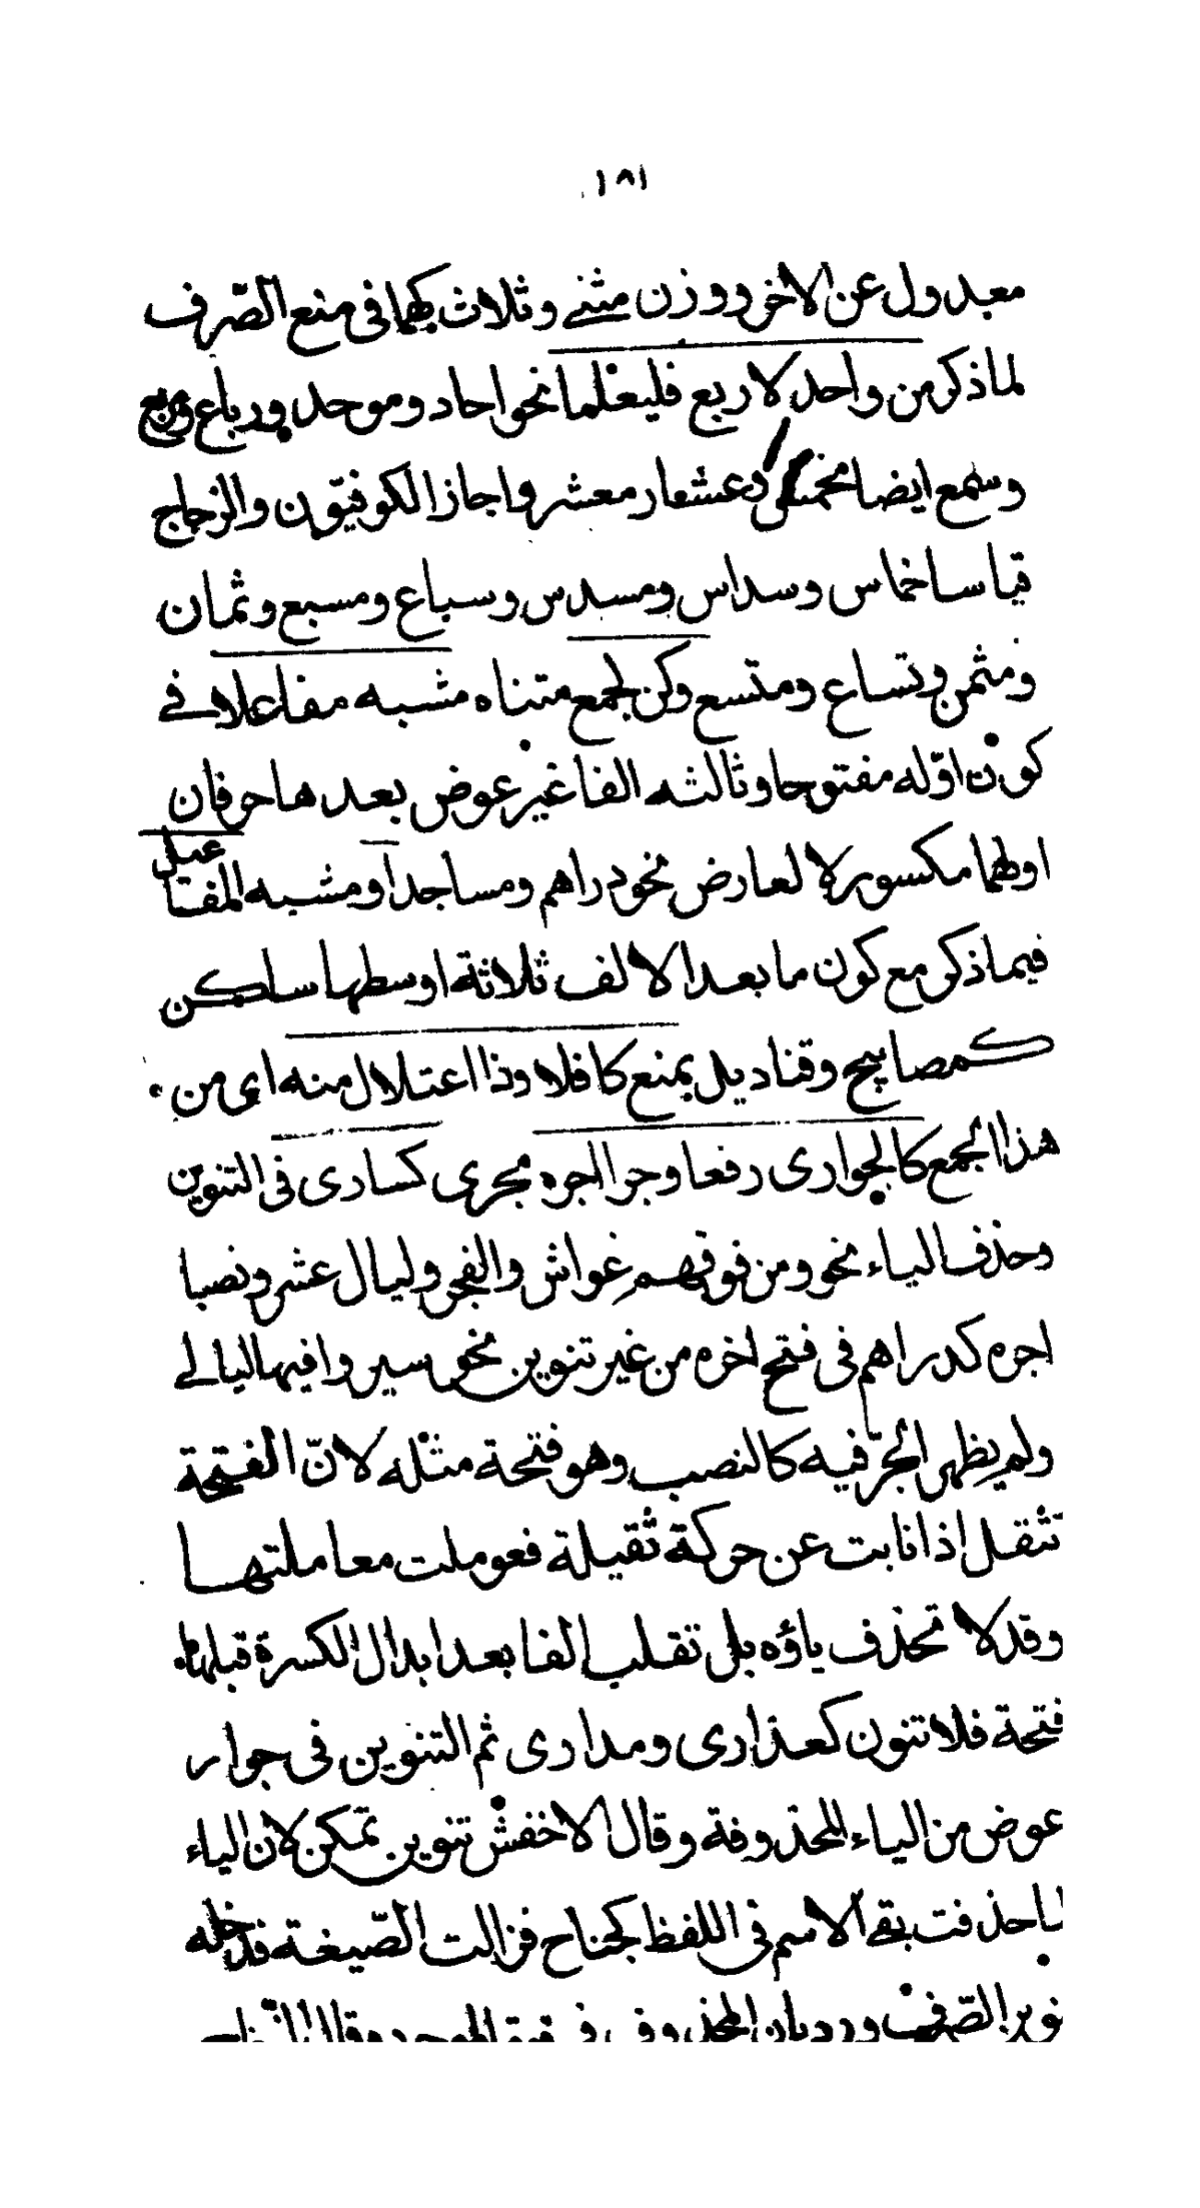 ١٨١
معدول عن الاخر ووزن مثنى وثلاث كهما فى منع الصّرف
لما ذكر من واحد لاربع فليعلما نحو احاد وموحد ورباع ومربع
وسمع ايضا مخمس وعشار ومعشر واجاز الكوفيّون والزجاج
قياسا خماس وسداس ومسدس وسباع ومسبع وثمان
ومثمن وتساع ومتسع وكن لجمع متناه مشبه مفاعلا فى
كون اوّله مفتوحا وثالثه الفا غير عوض بعدها حرفان
اولهما مكسور لا لعارض نحو دراهم ومساجد او مشبه المفاعيل
فيما ذكر مع كون ما بعد الالف ثلاثة اوسطها ساكن
كمصابيح وقناديل بمنع كافلا وذا اعتلال منه اى من
هذا الجمع كالجوارى رفعا وجرا اجره مجرى كسارى فى التنوين
وحذف الياء نحو ومن فوقهم غواش والفجر وليال عشر ونصبا
اجره كدراهم فى فتح اخره من غير تنوين نحو سيروا فيها ليالى
ولم يظهر الجرّ فيه كالنصب وهو فتحة مثله لانّ الفتحة
تثقل اذا نابت عن حركة ثقيلة فعوملت معاملتها
وقد لا تحذف ياؤه بل تقلب الفا بعد ابدال الكسرة قبلها
فتحة فلا تنون كعذارى ومدارى ثم التنوين فى جوار
عوض من الياء المحذوفة وقال الاخفش تنوين تمكن لان الياء
لما حذفت بقى الاسم فى اللفظ كجناح فزالت الصّيغة فدخله
تنوين الصّرف ورد بان المحذوف فى قوة الموجود وقال الزجاج